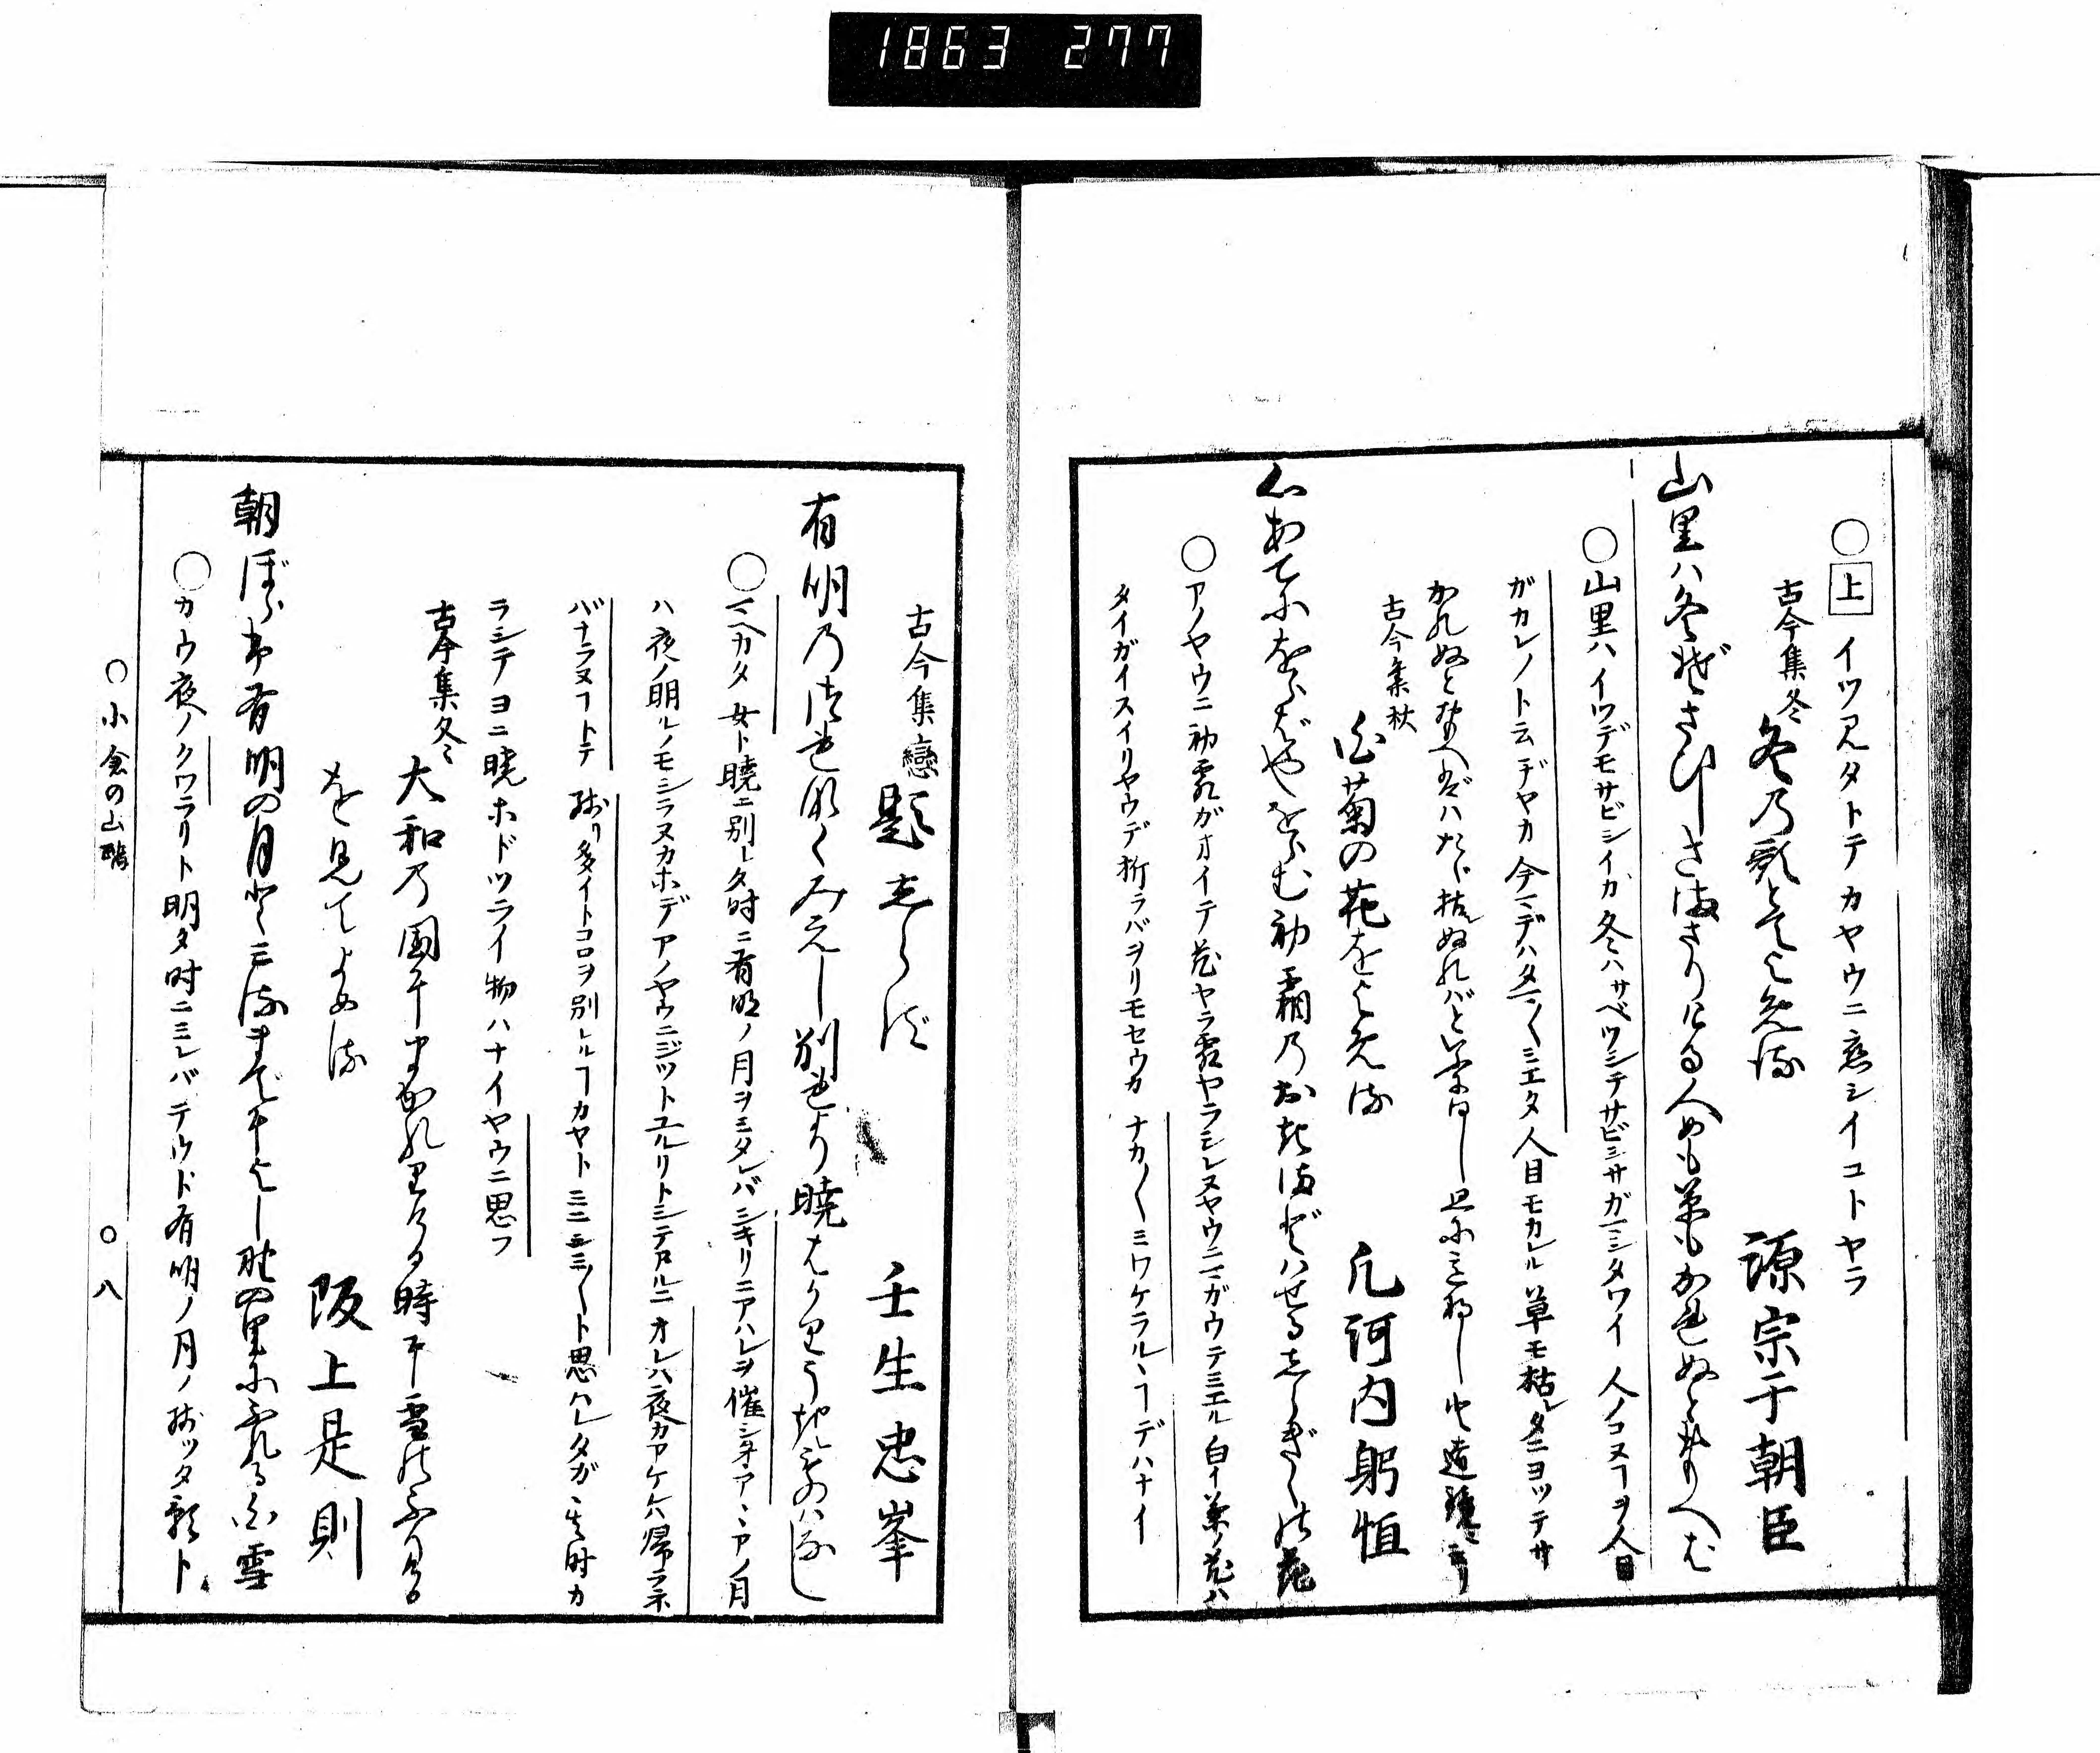 1863 277
○上 イツ見タトテカヤウニ恋シイコトヤラ
古今集冬 冬乃歌とてよめる 源宗于朝臣
山里ハ冬ぞさびしさまさりける人めも草もかれぬと思へば
○山里ハイツデモサビシイガ冬ハサベツシテサビシサガマシタワイ 人ノコヌヿヲ人目
ガカレノト云ヂヤガ今マデハタマ〳〵ミエタ人目モカレル草モ枯レタニヨツテサ
かれぬと
古今集秋 白菊の花をよめる 凡河内躬恒
心あてにをらばやをらむ初霜乃おきまどハせるしらぎくの花
○アノヤウニ初霜ガオイテ花ヤラ霜ヤラシレヌヤウニマガウテミエル白イ菊ノ花ハ
タイガイスイリヤウデ折ラバヲリモセウガ ナカ〳〵ミワケラルヽヿデハナイ
古今集戀 題しらず 壬生忠峯
有明乃つれなくみえし別れより暁ばかりうき物ハなし
女ト暁ニ別レタ時ニ有明ノ月ヲミタレバシキリニアハレヲ催シタアヽアノ月
ハ夜ノ明ルノモシラヌカホデアノヤウニジツトユルリトシテヲルニオレハ夜ガアケレバ帰ラネ
バナラヌヿトテ 残リ多イトコロヲ別レルヿカヤト 思ハレタガ 其時カ
ラシテヨニ暁ホドツライ物ハナイヤウニ思フ
古今集冬 大和乃国にまかれりける時に雪のふりける
を見てよめる 阪上是則
朝ぼらけ有明の月とミるまでによし野の里にふれる白雪
○カウ夜ノクワラリト明タ時ニミレバテウド有明ノ月ノ残ツタ影ト
○小倉の山 ○八